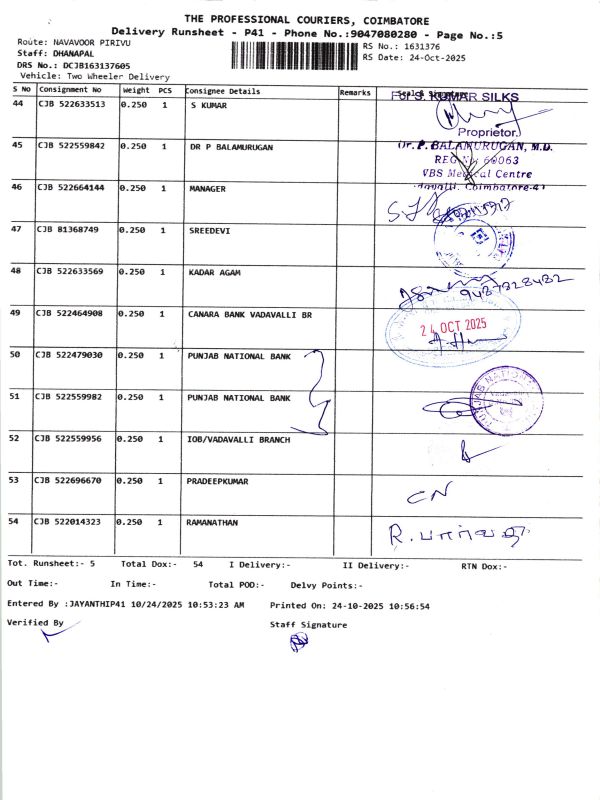 THE PROFESSIONAL COURIERS, COIMBATORE
Delivery Runsheet - P41 - Phone No.:9047080280 - Page No.:5
Route: NAVAVOOR PIRIVU
Staff: DHANAPAL
DRS No.: DCJB163137605
Vehicle: Two Wheeler Delivery
RS No.: 1631376
RS Date: 24-Oct-2025
S No Consignment No Weight PCS Consignee Details Remarks Seal & Signature
44 CJB 522633513 0.250 1 S KUMAR
For S. KUMAR SILKS
Proprietor.
45 CJB 522559842 0.250 1 DR P BALAMURUGAN
Dr. P. BALAMURUGAN, M.D.
REG No 60063
VBS Medical Centre
Vadavalli, Coimbatore-41
46 CJB 522664144 0.250 1 MANAGER
47 CJB 81368749 0.250 1 SREEDEVI
48 CJB 522633569 0.250 1 KADAR AGAM
9487828482
49 CJB 522464908 0.250 1 CANARA BANK VADAVALLI BR
24 OCT 2025
50 CJB 522479030 0.250 1 PUNJAB NATIONAL BANK
51 CJB 522559982 0.250 1 PUNJAB NATIONAL BANK
PUNJAB NATIONAL
52 CJB 522559956 0.250 1 IOB/VADAVALLI BRANCH
53 CJB 522696670 0.250 1 PRADEEPKUMAR
CN
54 CJB 522014323 0.250 1 RAMANATHAN
R. பார்வதி
Tot. Runsheet:- 5 Total Dox:- 54 I Delivery:- II Delivery:- RTN Dox:-
Out Time:- In Time:- Total POD:- Delvy Points:-
Entered By :JAYANTHIP41 10/24/2025 10:53:23 AM Printed On: 24-10-2025 10:56:54
Verified By Staff Signature